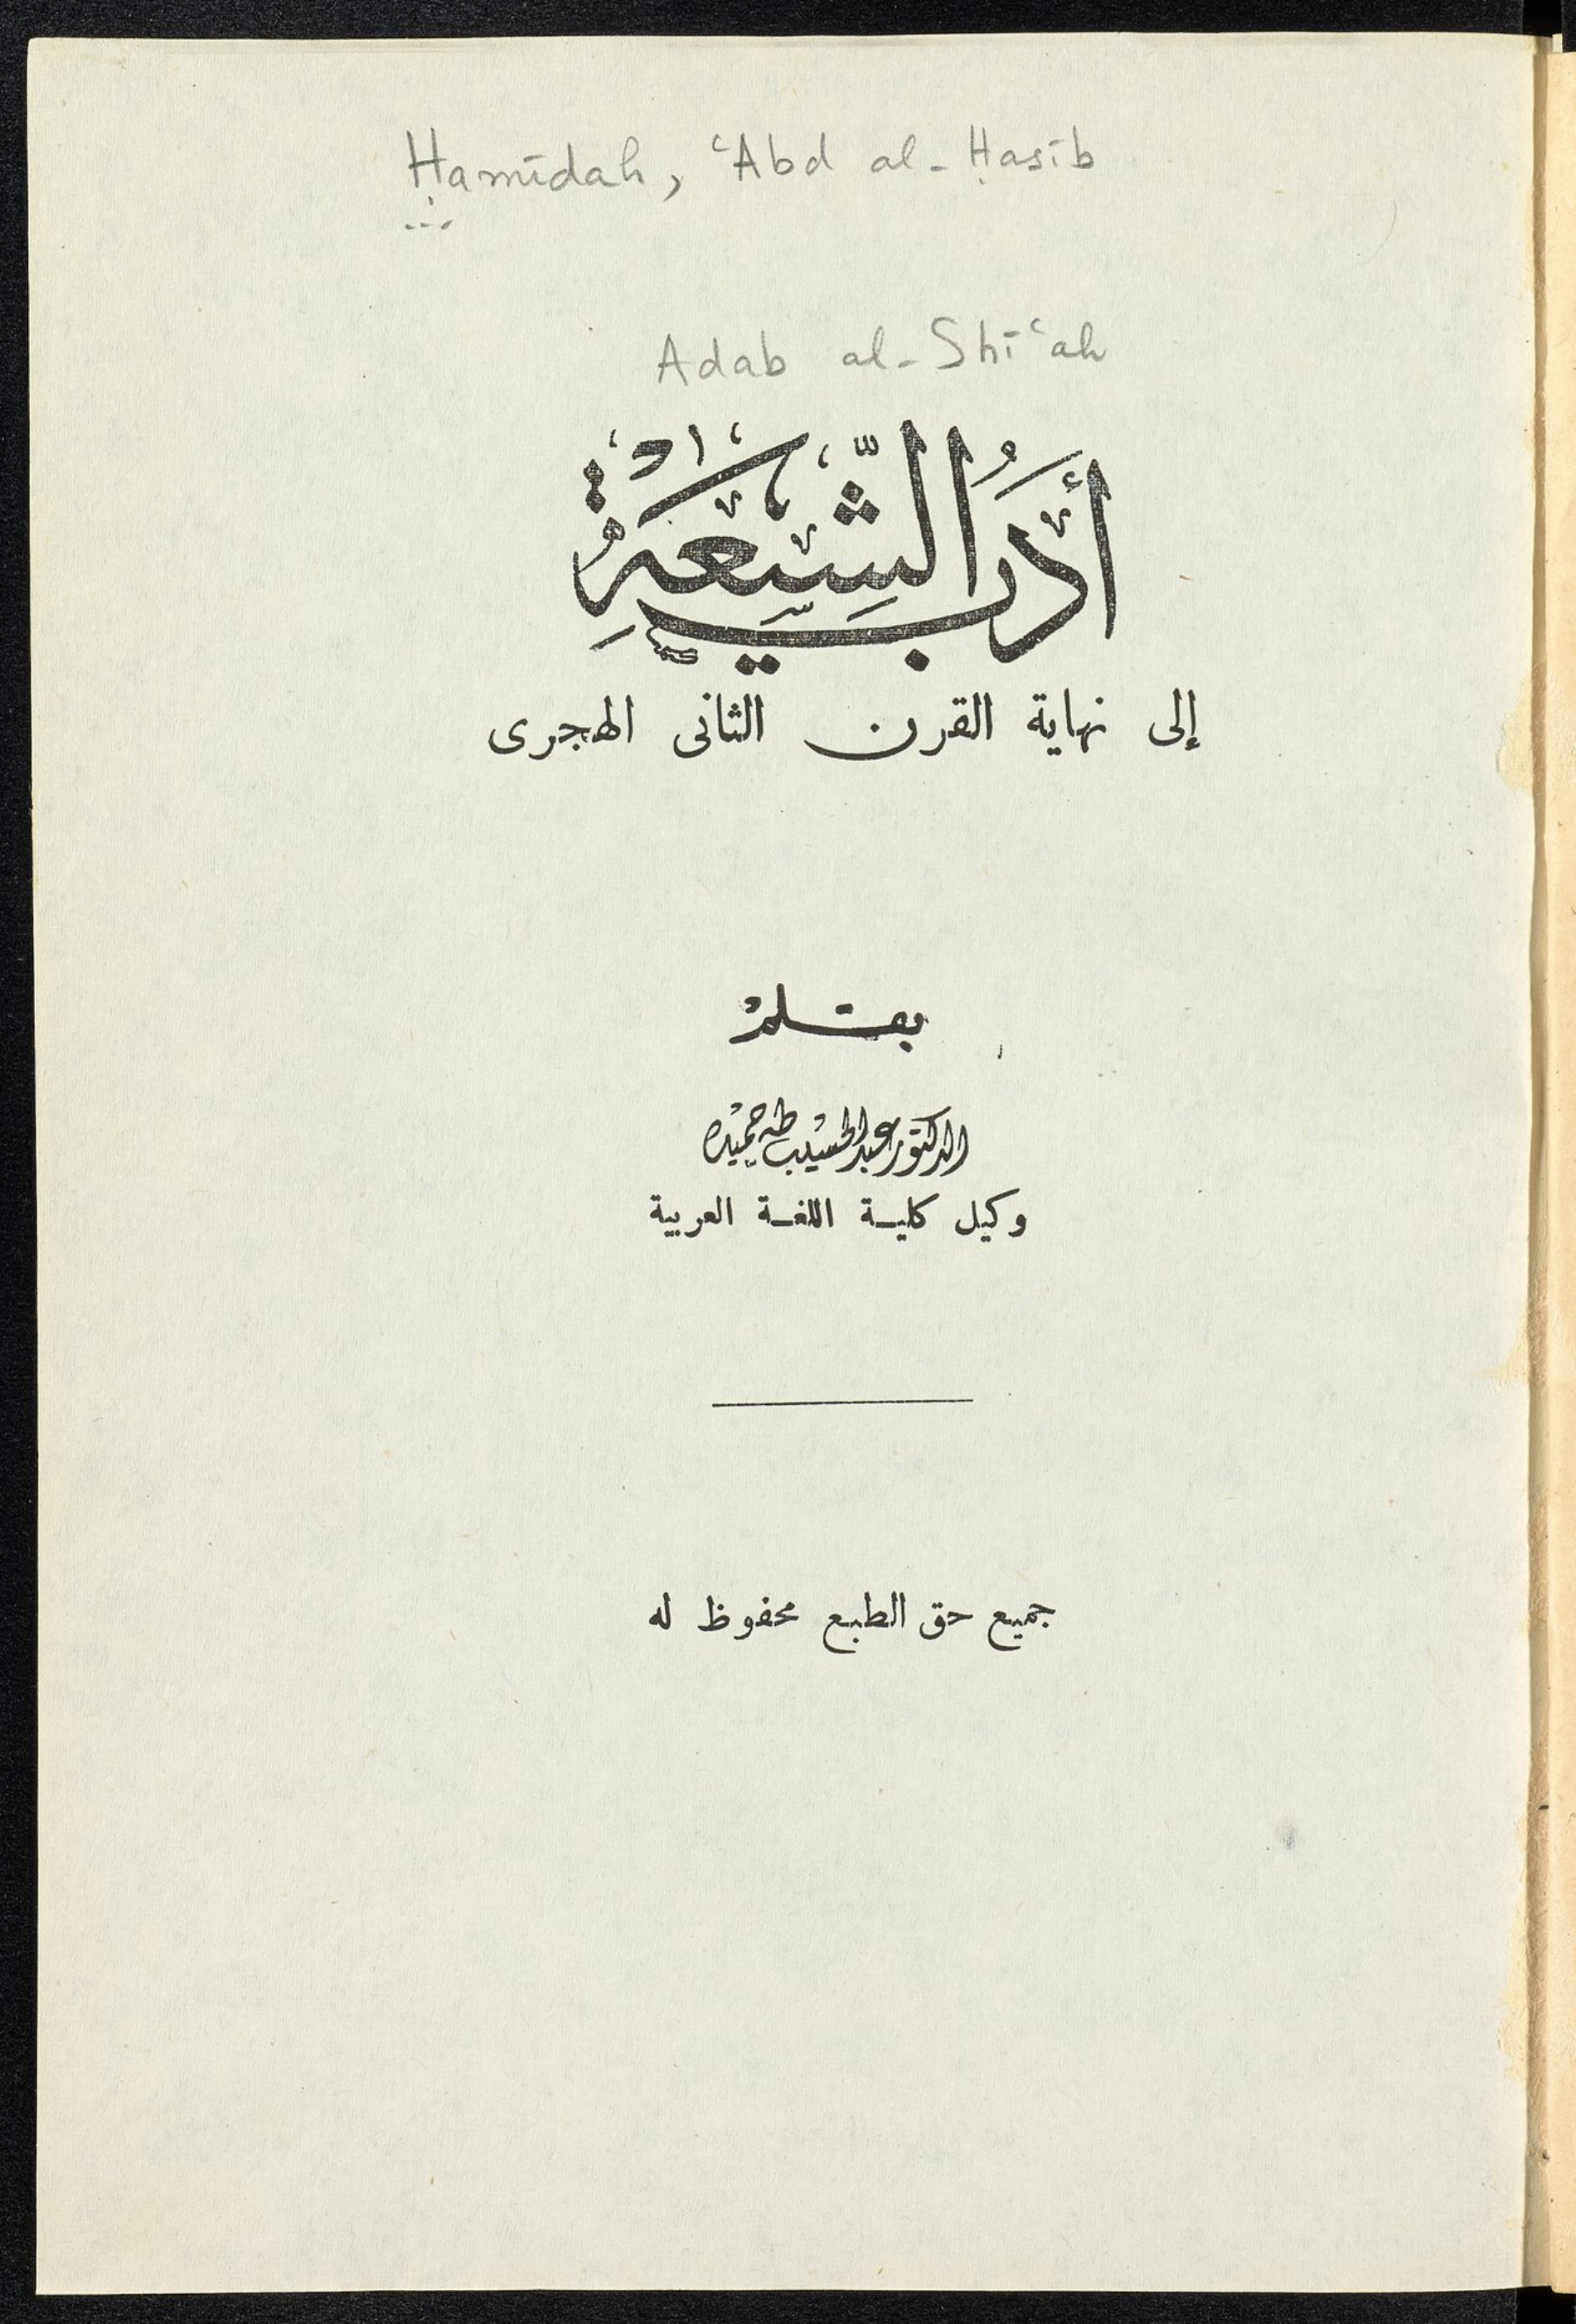 Ḥamīdah, ʿAbd al-Ḥasīb
Adab al-Shīʿah
أَدَبُ الشِّيعَةِ
إلى نهاية القرن الثانى الهجرى
بقلم
الدكتور عبد الحسيب طه حميده
وكيل كلية اللغة العربية
جميع حق الطبع محفوظ له